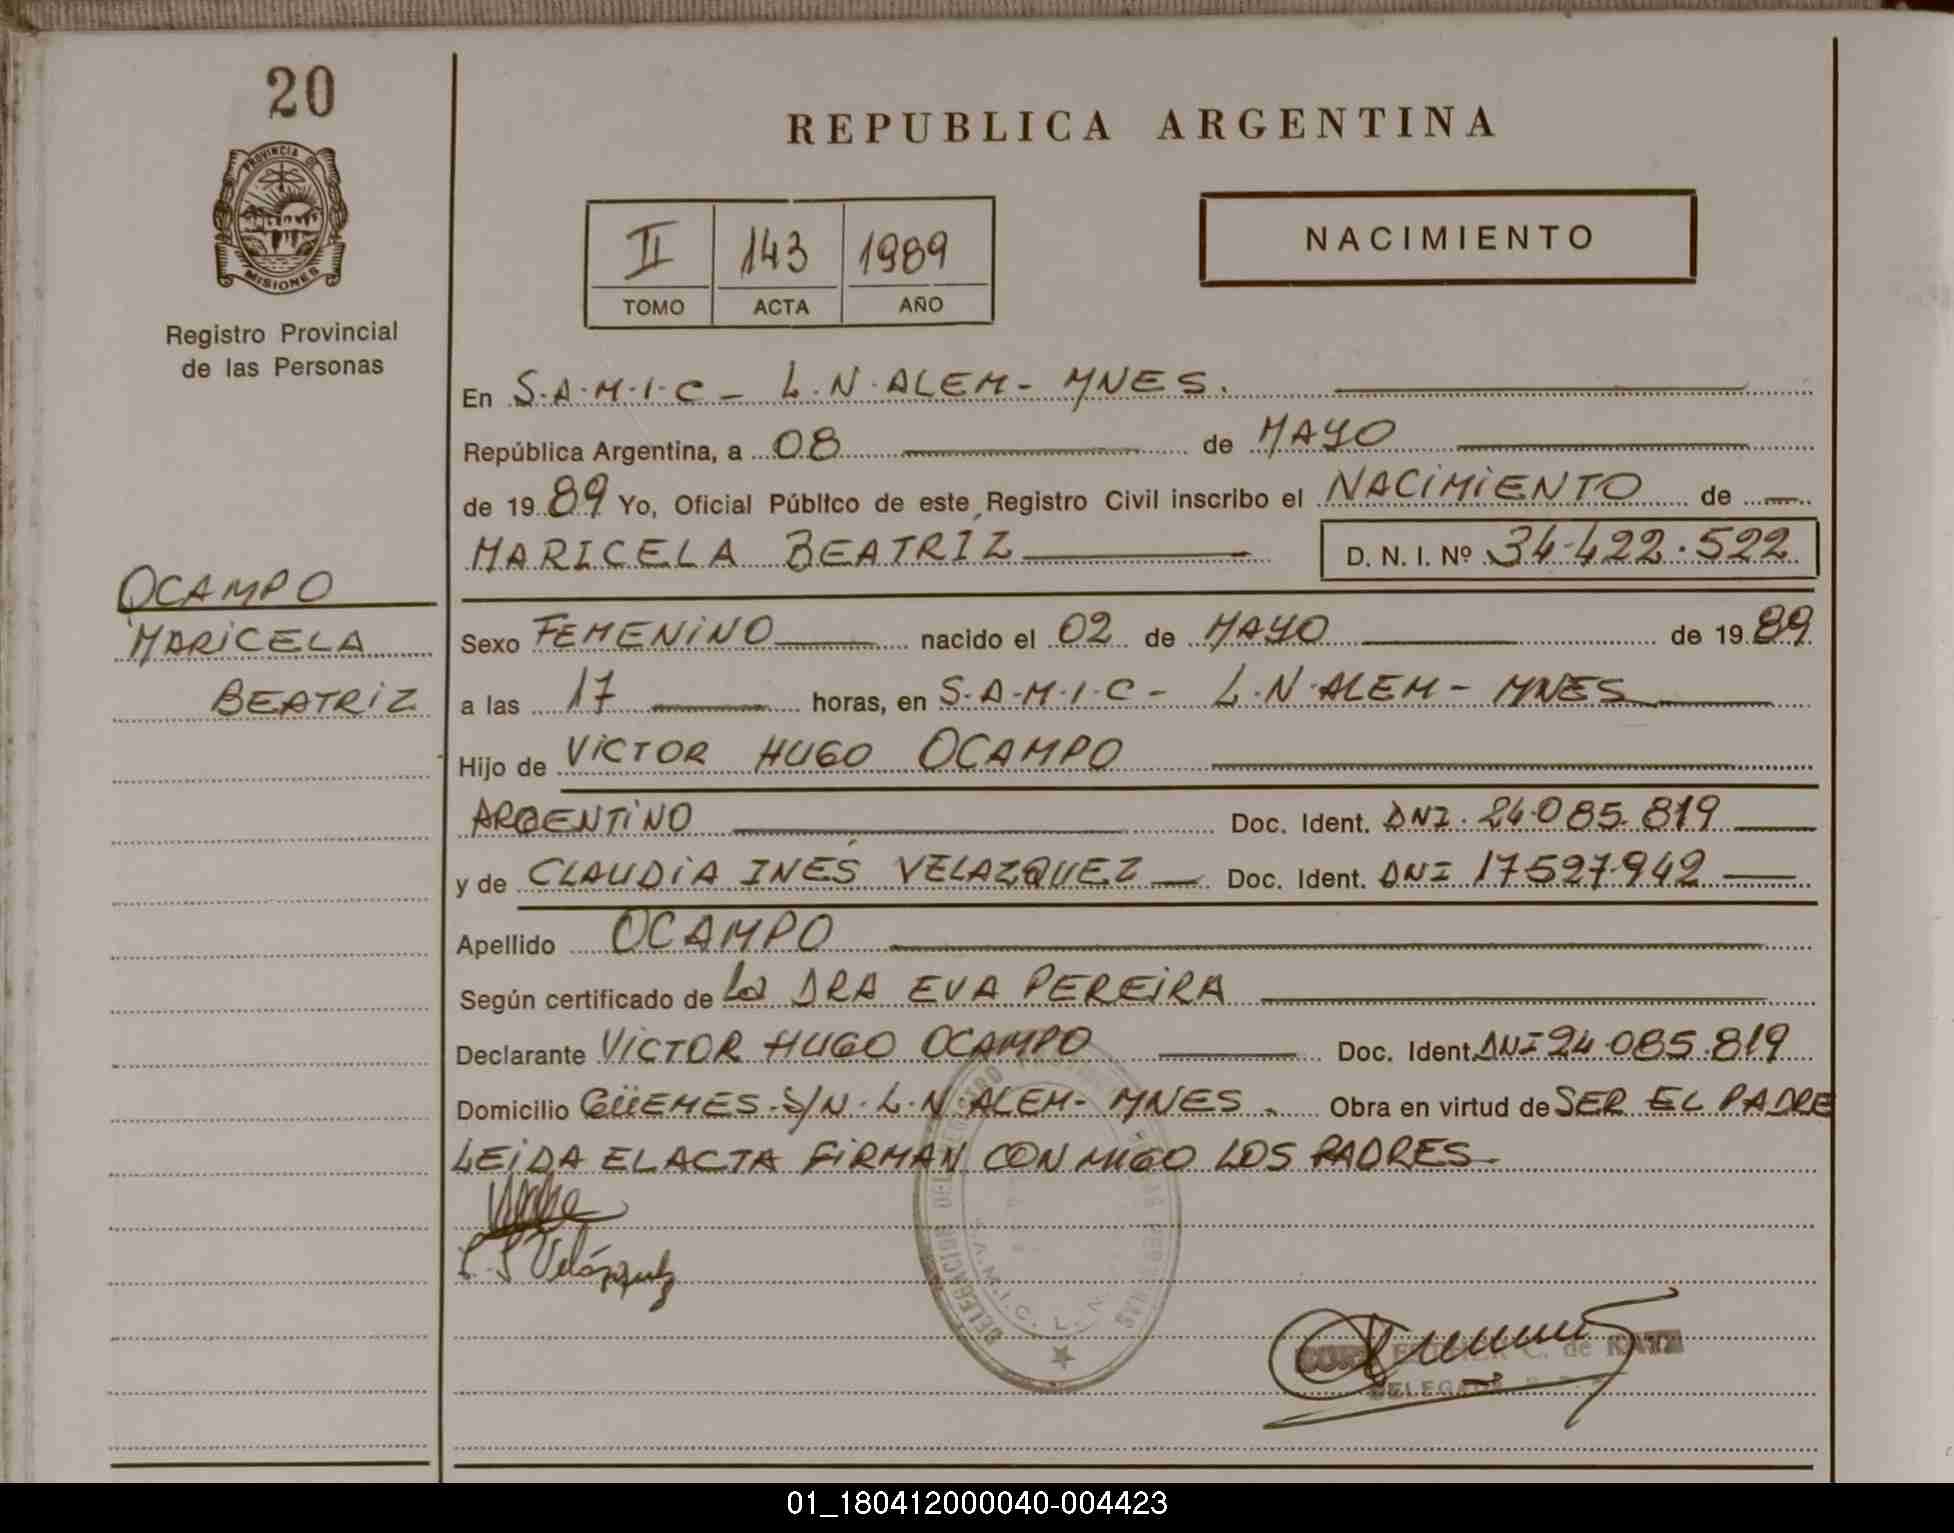 20
PROVINCIA DE
MISIONES
Registro Provincial
de las Personas
OCAMPO
MARICELA
BEATRIZ
REPUBLICA ARGENTINA
II 143 1989
TOMO ACTA AÑO
NACIMIENTO
En S.A.M.I.C - L.N.ALEM - MNES.
República Argentina, a 08 de MAYO
de 1989 Yo, Oficial Público de este Registro Civil inscribo el NACIMIENTO de
MARICELA BEATRÍZ D. N. I. Nº 34.422.522
Sexo FEMENINO nacido el 02 de MAYO de 1989
a las 17 horas, en S.A.M.I.C - L.N.ALEM - MNES
Hijo de VICTOR HUGO OCAMPO
ARGENTINO Doc. Ident. DNI. 24.085.819
y de CLAUDIA INÉS VELAZQUEZ Doc. Ident. DNI 17527.942
Apellido OCAMPO
Según certificado de La DRA EVA PEREIRA
Declarante VICTOR HUGO OCAMPO Doc. Ident. DNI 24.085.819
Domicilio GÜEMES.S/N.L.N ALEM - MNES. Obra en virtud de SER EL PADRE
LEIDA EL ACTA FIRMAN CON MIGO LOS PADRES
Velázquez
DELEGACION DEL REGISTRO DE LAS PERSONAS
S.A.M.I.C. L. N.
C. de
DELEGADA
01_180412000040-004423